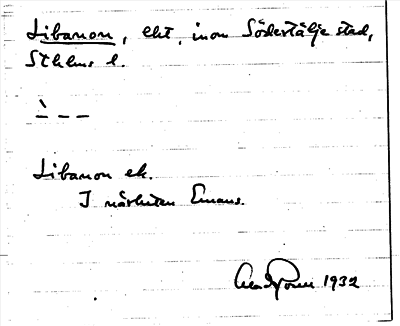 Libanon, lht, inom Södertälje stad,
Sthlms l.
` – – –
Libanon ek.
I närheten Emaus.
1932